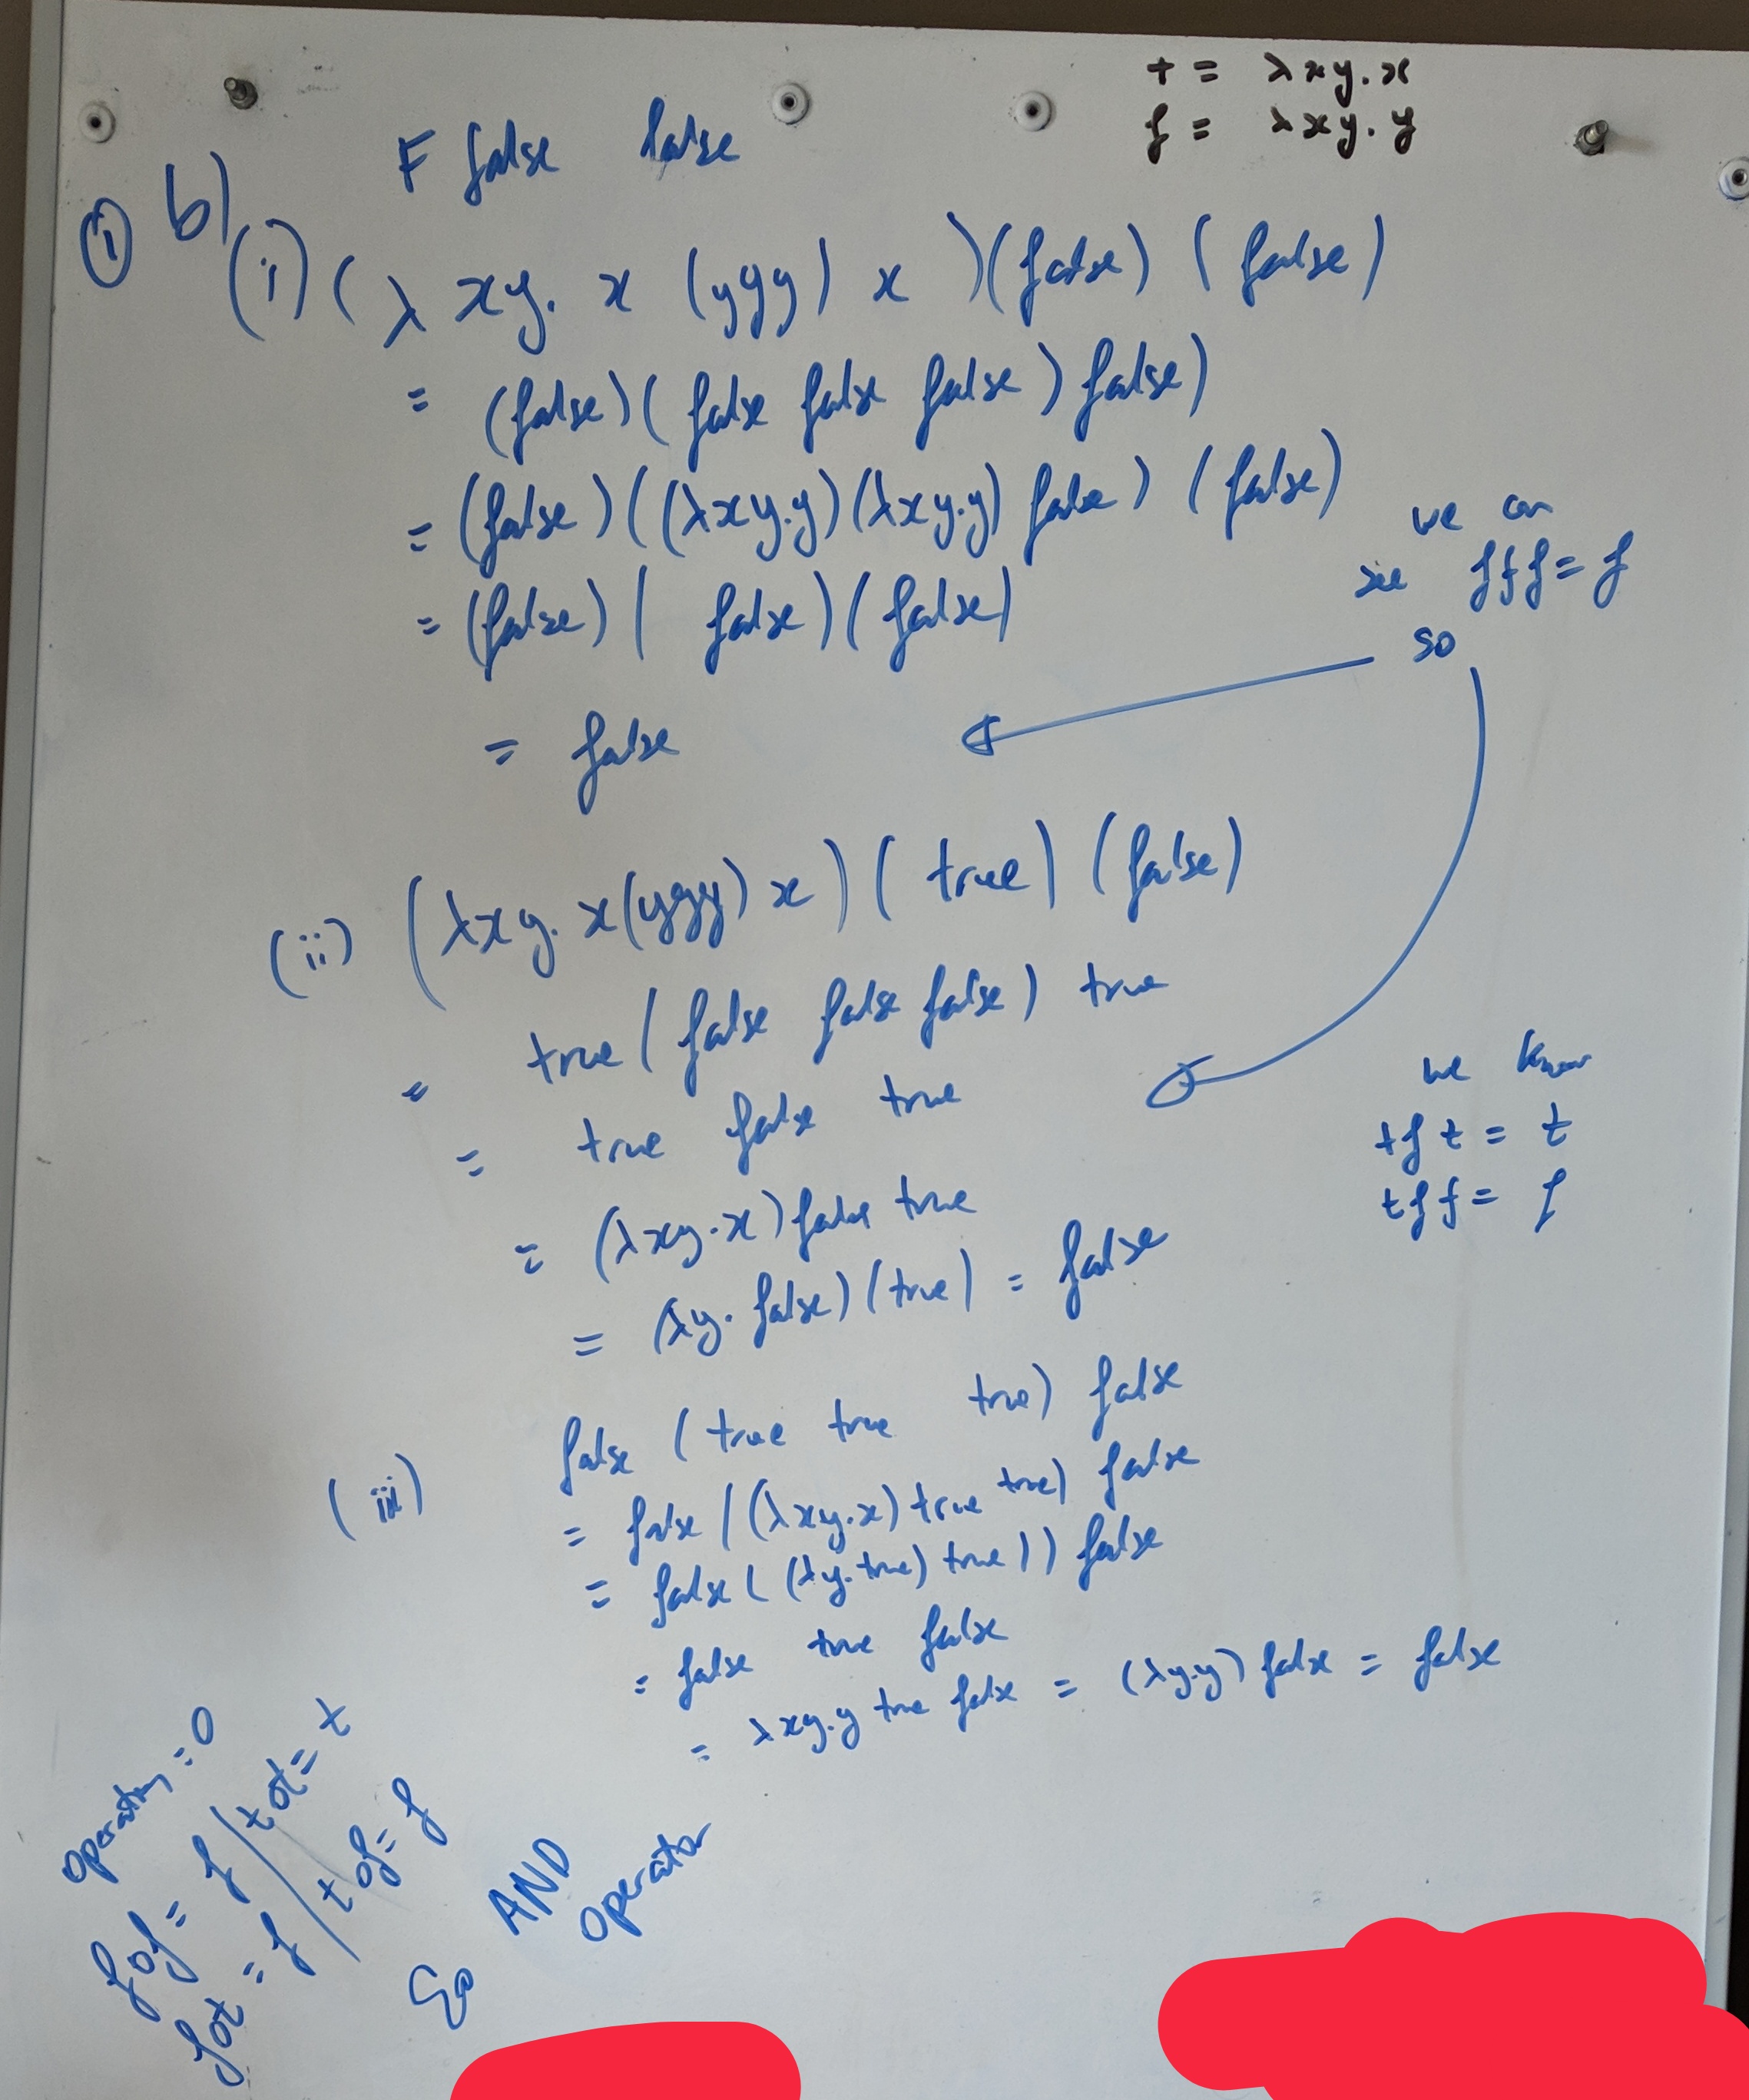 t = λxy.x
f = λxy.y
F false false
① b)
(i) (λ xy. x (yyy) x )(false) (false)
= (false)(false false false) false)
= (false)((λxy.y)(λxy.y) false) (false)
= (false)( false)(false)
we can
see fff = f
so
= false
(ii) (λxy. x(yyy) x) (true) (false)
= true (false false false) true
= true false true
= (λxy.x) false true
= (λy. false)(true) = false
we know
tft = t
tff = f
(iii) false (true true true) false
= false ((λxy.x) true true) false
= false ( (λy.true) true)) false
= false true false
= λxy.y true false = (λy.y) false = false
operation = O
fof = f / tot = t
fot = f / tof = f
So AND operator